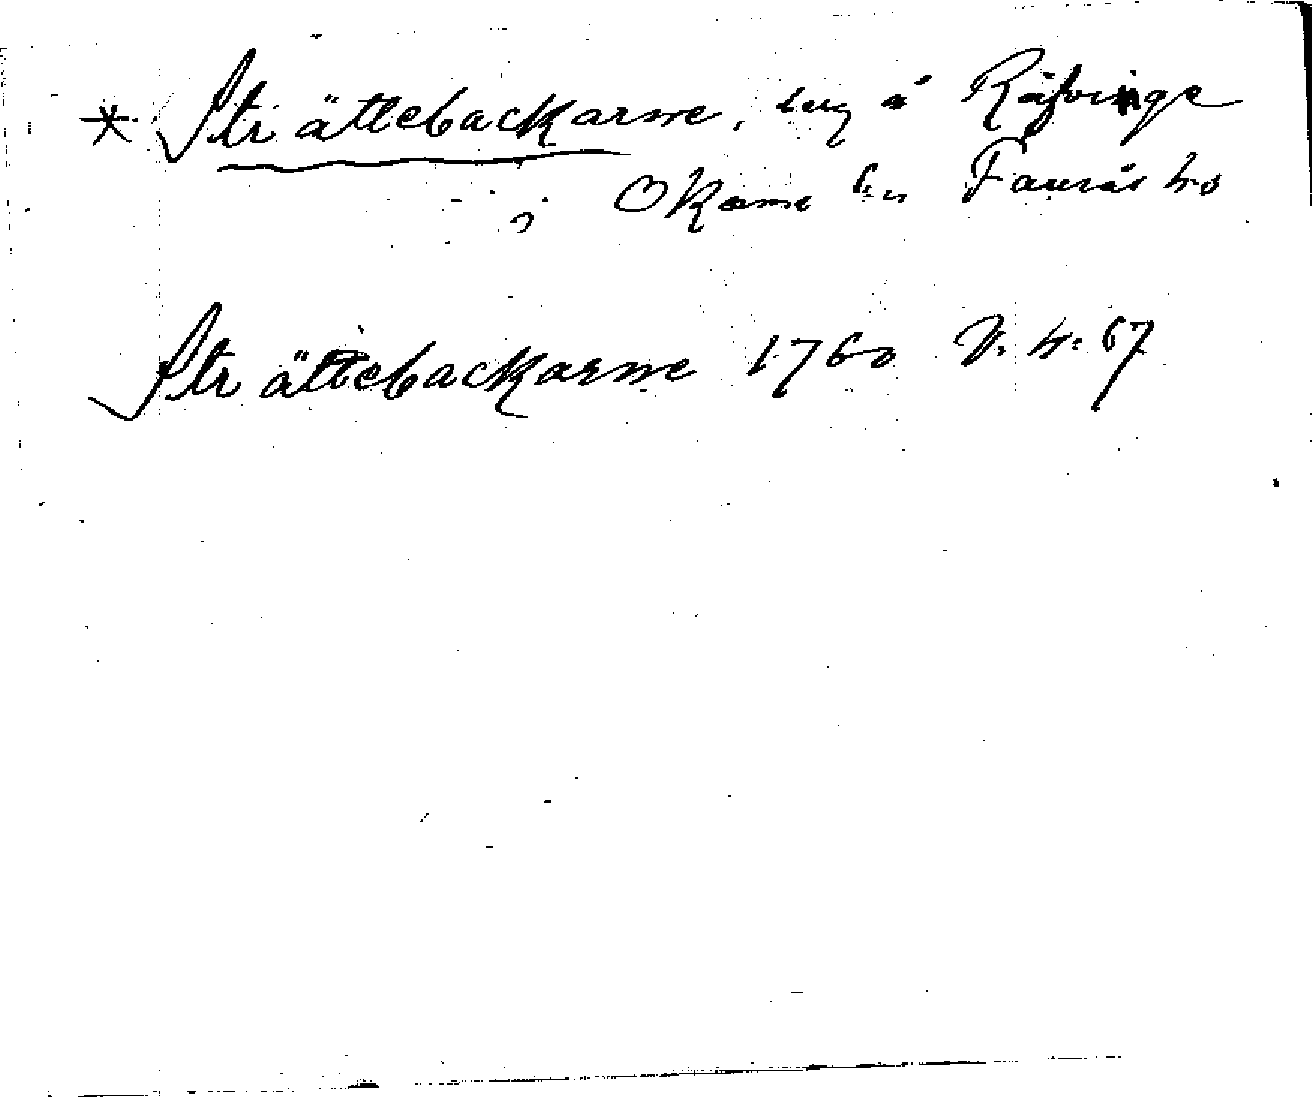 * Strättebackarne, berg å Räfvinge
i Okome sn Faurås hd
Strättebackarne 1760 V. 4: 67